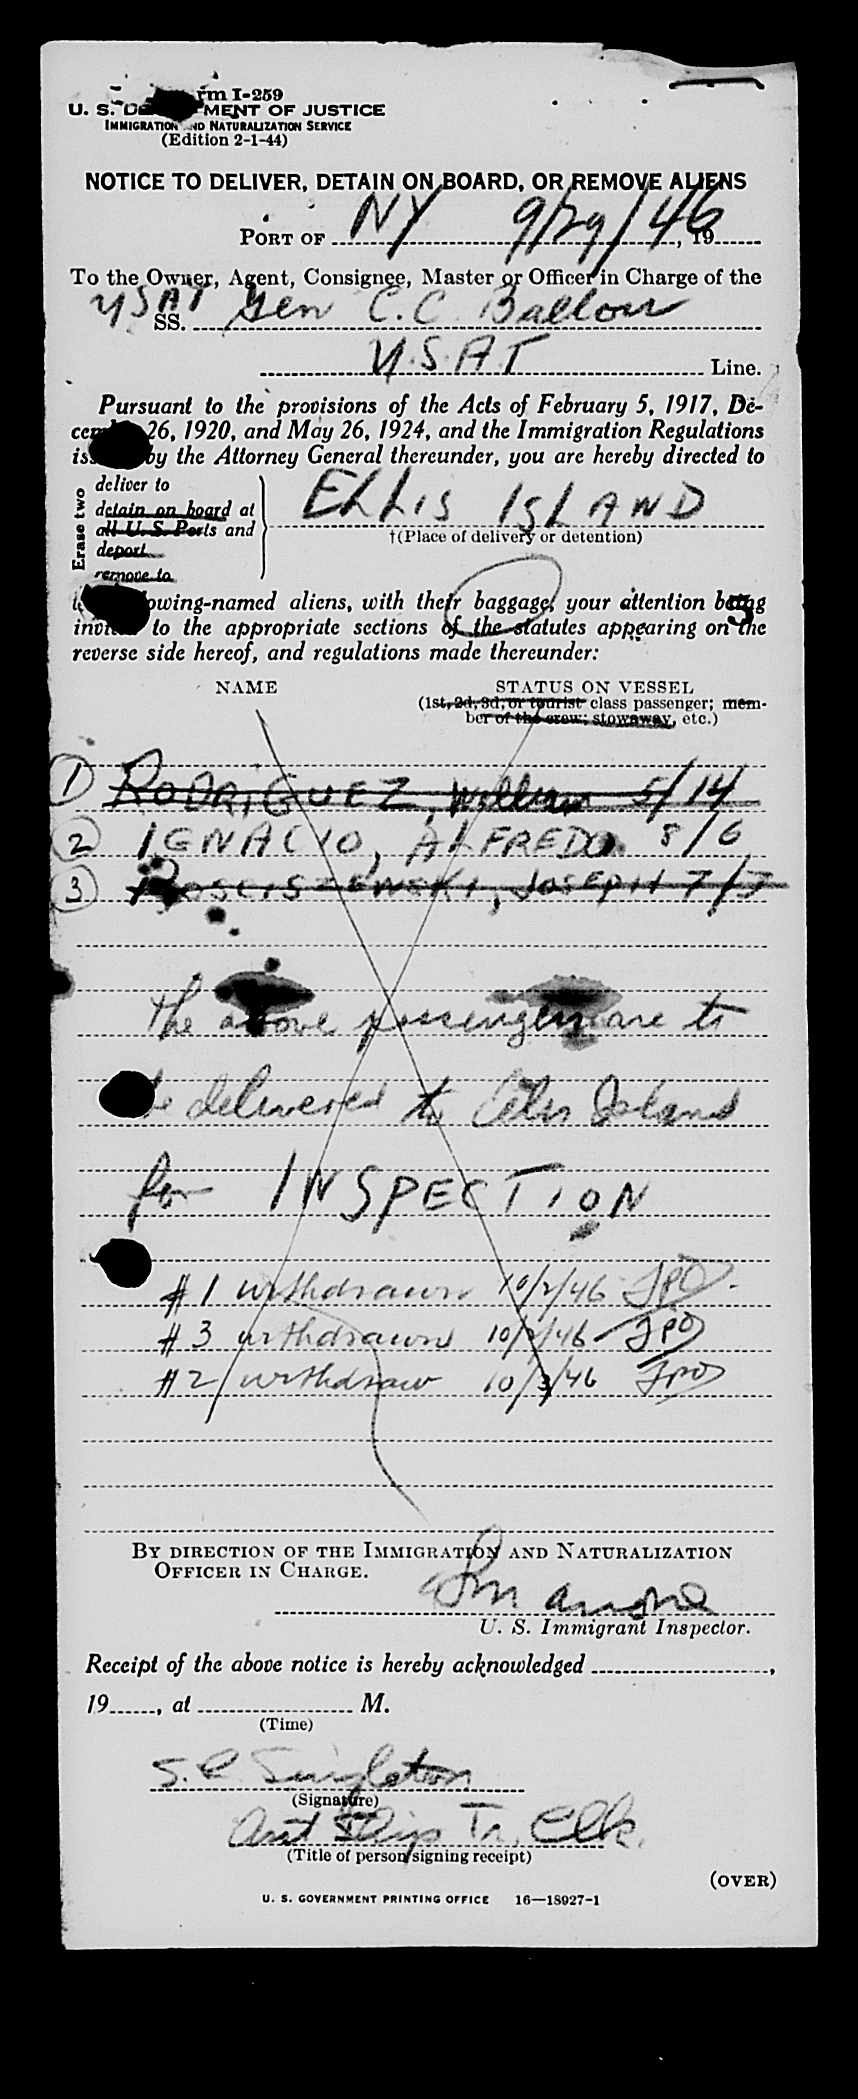 Form I-259
U. S. DEPARTMENT OF JUSTICE
IMMIGRATION AND NATURALIZATION SERVICE
(Edition 2-1-44)
NOTICE TO DELIVER, DETAIN ON BOARD, OR REMOVE ALIENS
PORT OF NY 9/29/46, 19
To the Owner, Agent, Consignee, Master or Officer in Charge of the
USAT SS. Gen C. C. Ballou
U.S.A.T Line.
Pursuant to the provisions of the Acts of February 5, 1917, De-
cember 26, 1920, and May 26, 1924, and the Immigration Regulations
issued by the Attorney General thereunder, you are hereby directed to
Erase two
deliver to
detain on board at
all U. S. Ports and
deport
remove to
ELLIS ISLAND
†(Place of delivery or detention)
the following-named aliens, with their baggage, your attention being
5
invited to the appropriate sections of the statutes appearing on the
reverse side hereof, and regulations made thereunder:
NAME STATUS ON VESSEL
(1st, 2d, 3d, or tourist class passenger; mem-
ber of the crew; stowaway, etc.)
1 RODRIGUEZ, William 5/14
2 IGNACIO, ALFREDO 8/6
3 ROSCISZEWSKI, JOSEPH 7/7
The above passengers are to
be delivered to Ellis Island
for INSPECTION
#1 withdrawn 10/2/46 JPO
#3 withdrawn 10/2/46 JPO
#2 withdraw 10/3/46 JPO
BY DIRECTION OF THE IMMIGRATION AND NATURALIZATION
OFFICER IN CHARGE.
U. S. Immigrant Inspector.
Receipt of the above notice is hereby acknowledged ,
19 , at M.
(Time)
S. C. Singleton
(Signature)
Tr. Clk.
(Title of person signing receipt)
(OVER)
U. S. GOVERNMENT PRINTING OFFICE 16—18927-1